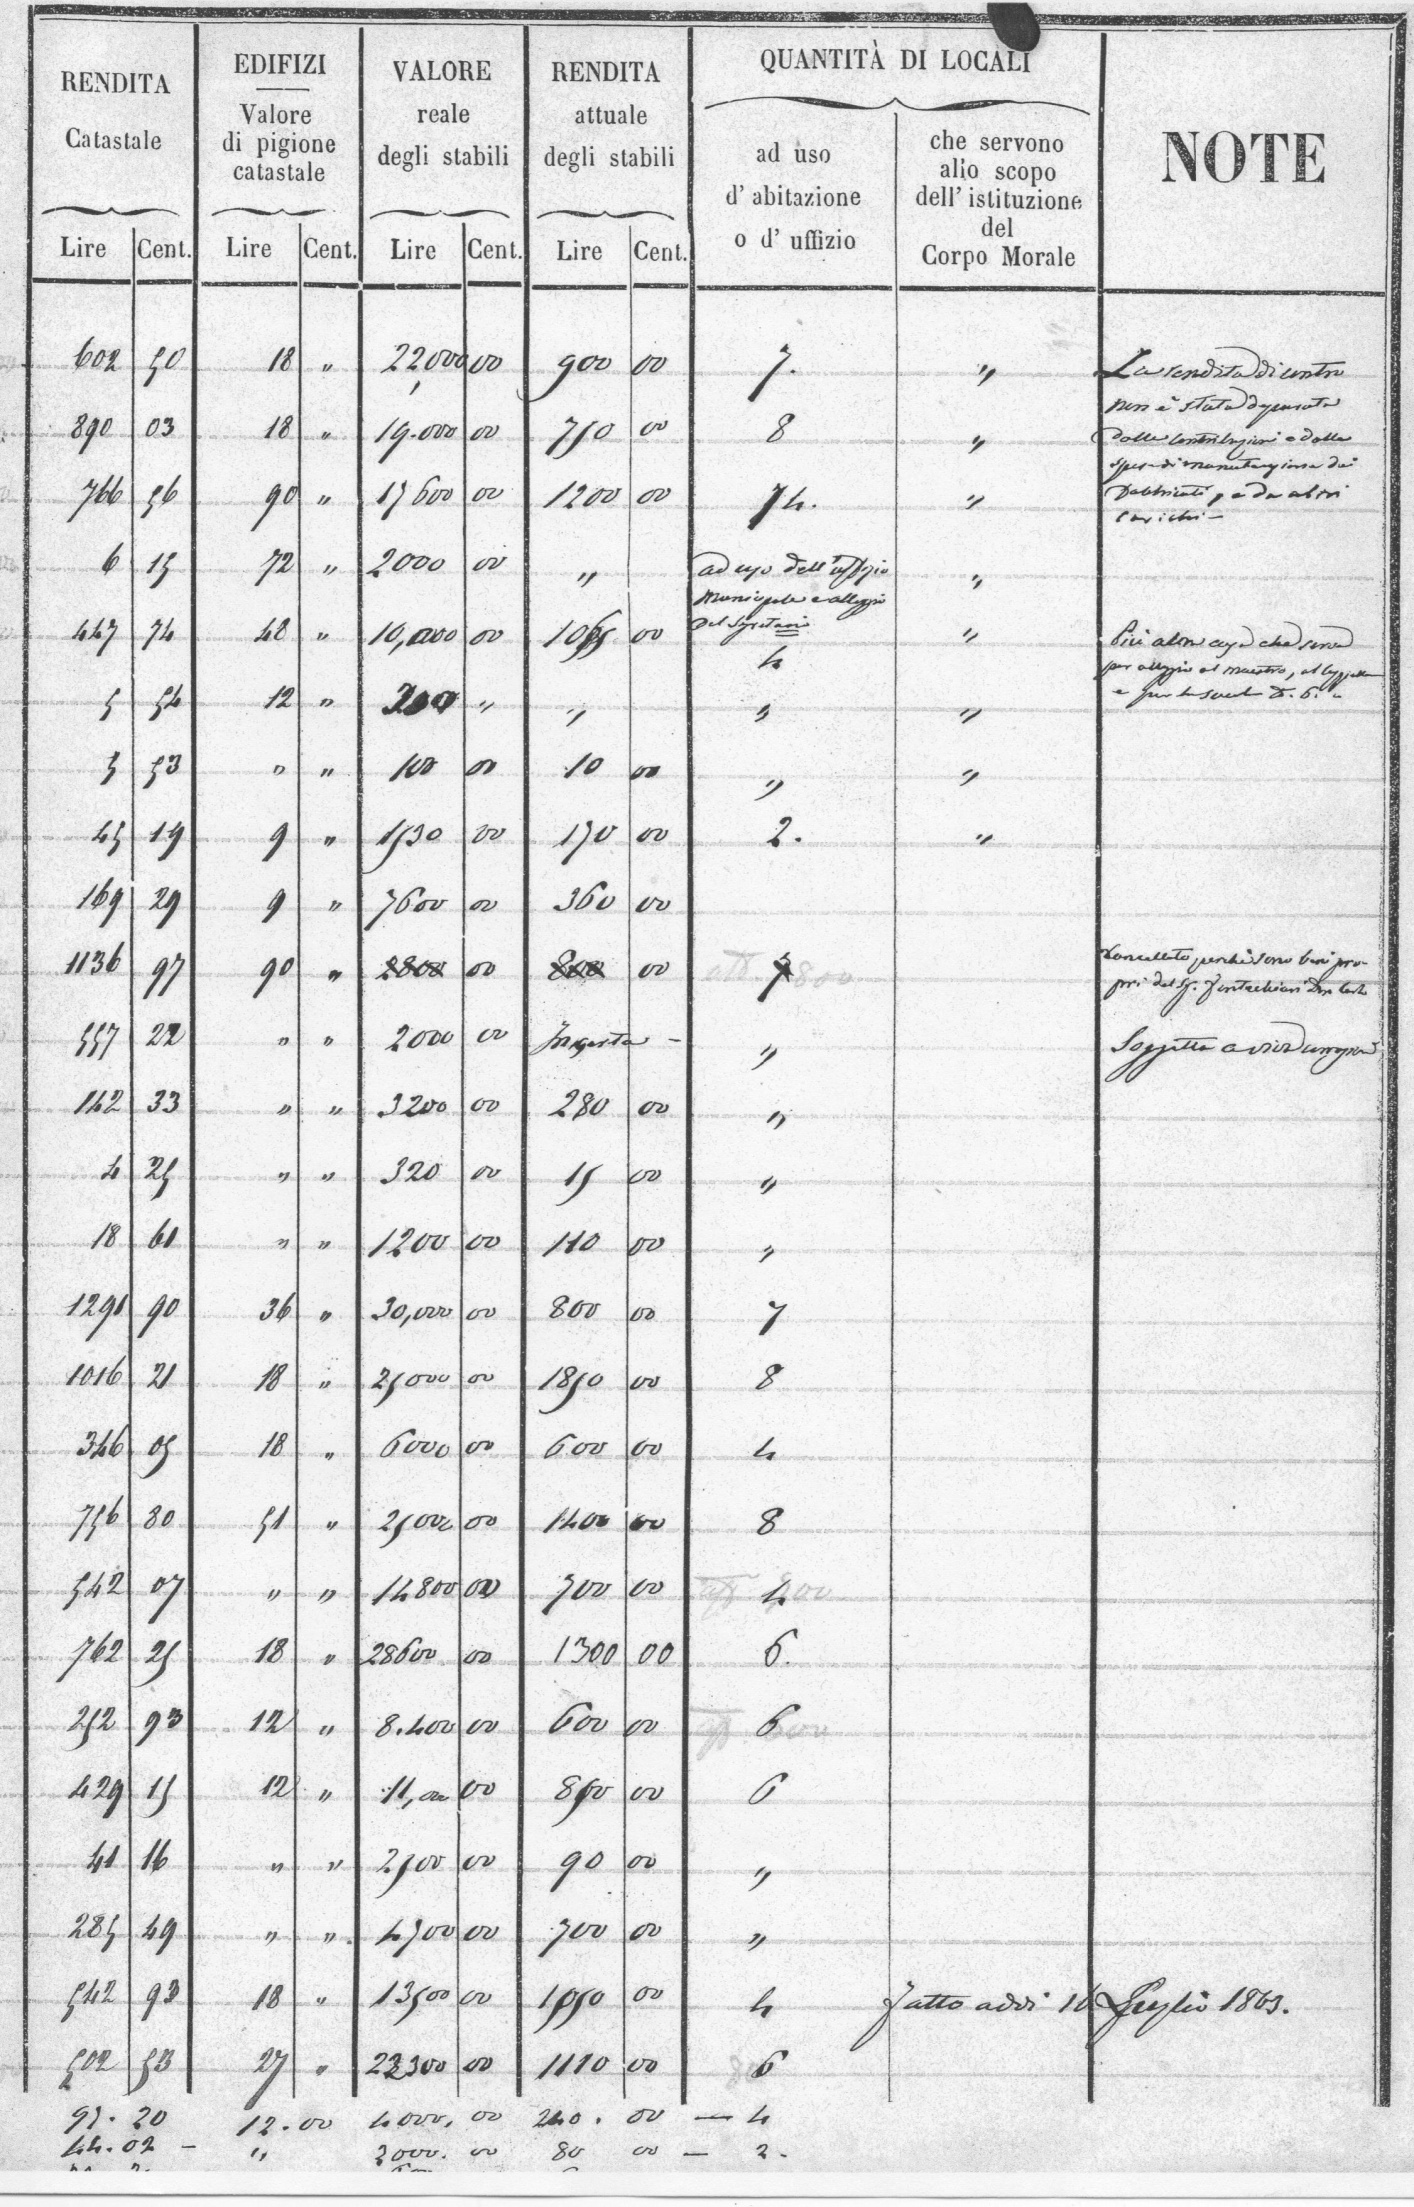 RENDITA
Catastale
EDIFIZI
Valore
di pigione
catastale
VALORE
reale
degli stabili
RENDITA
attuale
degli stabili
QUANTITÀ DI LOCALI
ad uso
d' abitazione
o d' uffizio
che servono
allo scopo
dell' istituzione
del
Corpo Morale
NOTE
Lire Cent. Lire Cent. Lire Cent. Lire Cent.
602 50 18 " 22000 00 900 00 7. " La rendita di contro
non è stata depurata
890 03 18 " 19.000 00 750 00 8 " dalle contribuzioni e dalle
spese di manutenzione dei
766 56 90 " 17600 00 1200 00 14. " Fabbricati, e da altri
carichi -
6 15 72 " 2000 00 " ad uso dell' uffizio "
Municipale e alloggio
del Segretario
447 74 48 " 10,000 00 1065 00 4 " Più altre case che serve
per alloggio al maestro, al
e per le scuole
5 54 12 " 300 " " " "
5 53 " " 100 00 10 00 " "
45 19 9 " 1530 00 170 00 2. "
169 29 9 " 7600 00 360 00
1136 97 90 " 2800 00 800 00 7 Cancellato perchè sono beni pro-
pri del Sig.
557 22 " " 2000 00 Incerta - " Soggetto a
142 33 " " 3200 00 280 00 "
4 25 " " 320 00 15 00 "
18 61 " " 1200 00 110 00 "
1291 90 36 " 30,000 00 800 00 7
1016 21 18 " 25000 00 1850 00 8
346 05 18 " 6000 00 600 00 4
756 80 51 " 25000 00 1400 00 8
542 07 " " 14800 00 700 00 4
762 25 18 " 28600 00 1300 00 6.
252 93 12 " 8.400 00 600 00 6
429 15 12 " 11,000 00 850 00 6
41 16 " " 2500 00 90 00 "
285 49 " " 4500 00 700 00 "
542 93 18 " 13500 00 1050 00 4 Fatto addi 16 Luglio 1863.
502 53 27 " 22300 00 1110 00 6
95. 20 12. 00 4000. 00 240. 00 — 4
44. 02 - " 2000. 00 80 00 — 2.